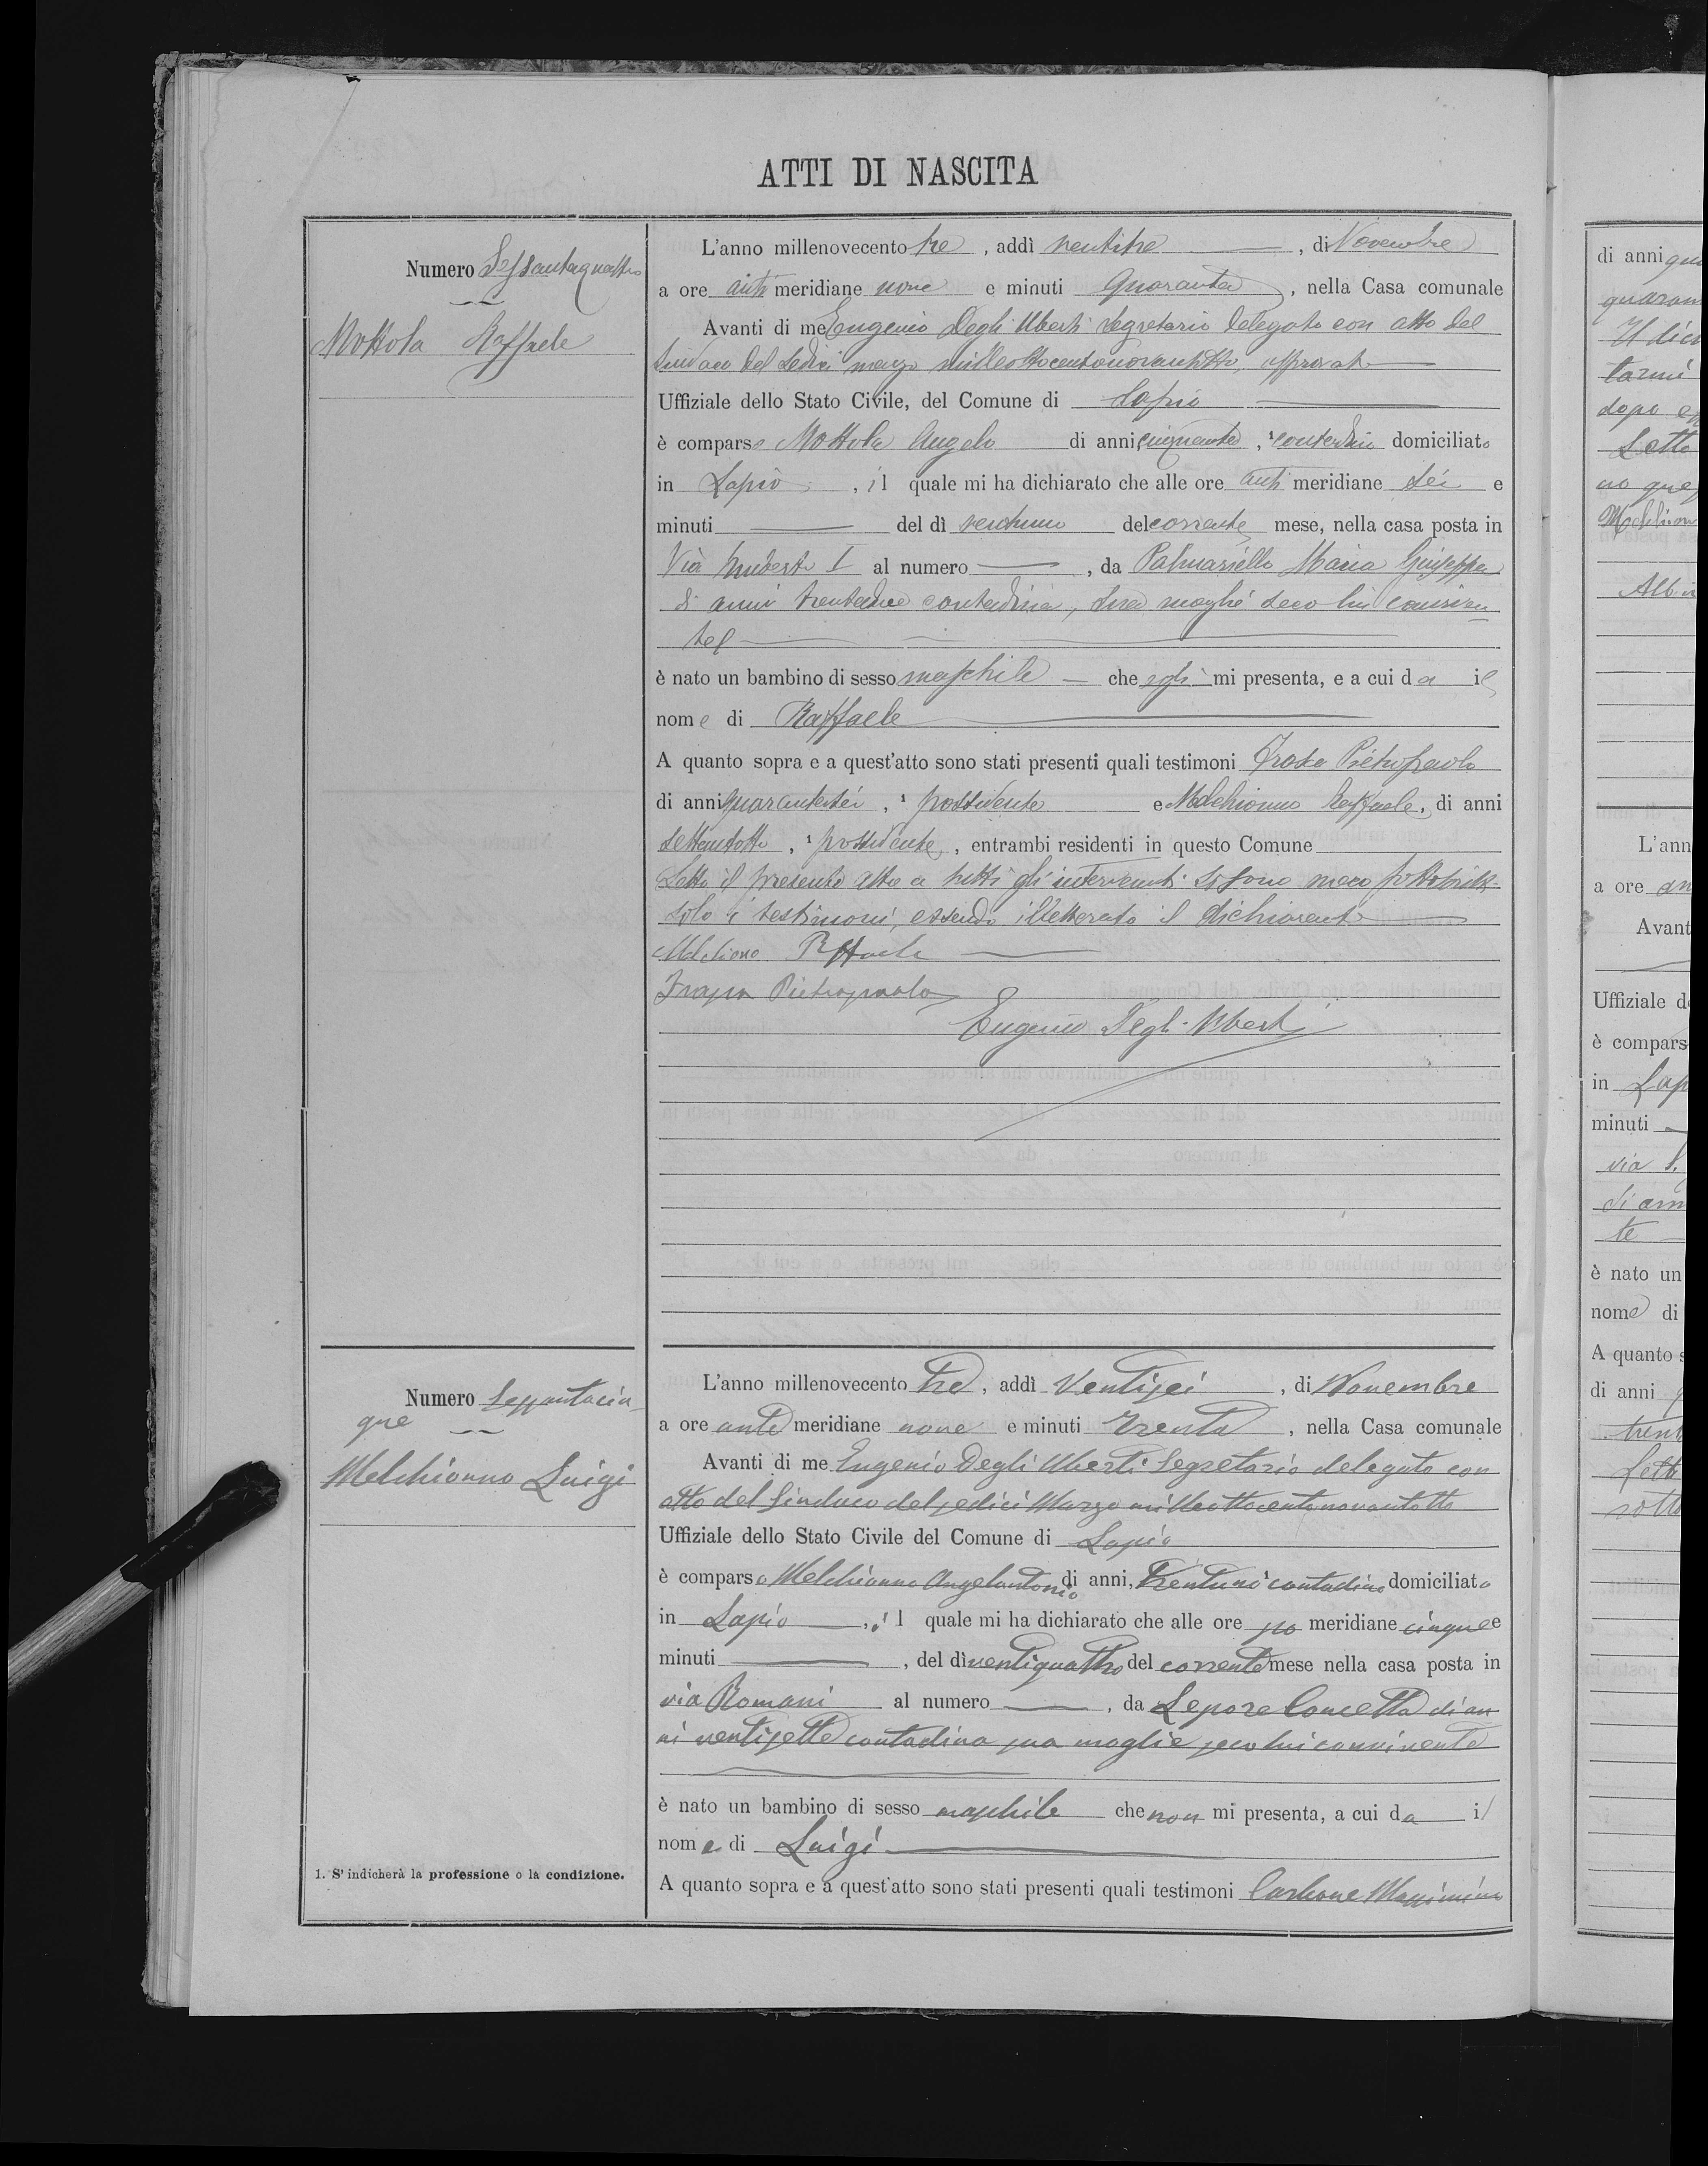 ATTI DI NASCITA
Numero Sessantaquattro
Mottola Raffaele
L'anno millenovecento tre, addì ventitre, di Novembre
a ore anti meridiane nove e minuti quaranta, nella Casa comunale
Avanti di me Eugenio Degli Uberti Segretario delegato con atto del
Sindaco del Sedici marzo milleottocentonovantotto, approvato
Uffiziale dello Stato Civile, del Comune di Lapio
è comparso Mottola Angelo di anni cinquanta, ¹ contadino domiciliato
in Lapio, il quale mi ha dichiarato che alle ore anti meridiane sei e
minuti del dì ventuno del corrente mese, nella casa posta in
Via Umberto I al numero, da Palmariello Maria Giuseppa
di anni trentadue contadina, sua moglie seco lui conviven
te
è nato un bambino di sesso maschile che egli mi presenta, e a cui da il
nome di Raffaele
A quanto sopra e a quest'atto sono stati presenti quali testimoni Pietropaolo
di anni quarantasei, ¹ possidente e Melchionno Raffaele, di anni
settantotto, ¹ possidente, entrambi residenti in questo Comune
Letto il presente atto a tutti gli intervenuti si sono meco sottoscritti
solo i testimoni, essendo illetterato il dichiarante
Melchiono Raffaele
Pietropaolo
Eugenio Degli Uberti
Numero Sessantacin
que
Melchionno Luigi
L'anno millenovecento tre, addì Ventisei, di Novembre
a ore ante meridiane nove e minuti trenta, nella Casa comunale
Avanti di me Eugenio Degli Uberti Segretario delegato con
atto del Sindaco del sedici Marzo milleottocentonovantotto
Uffiziale dello Stato Civile del Comune di Lapio
è comparso Melchionno Angelantonio di anni, trentuno ¹ contadino domiciliato
in Lapio, il quale mi ha dichiarato che alle ore po meridiane cinque e
minuti, del dì ventiquattro del corrente mese nella casa posta in
via Romani al numero, da Lepore Concetta di an
ni ventisette contadina sua moglie seco lui convivente
è nato un bambino di sesso maschile che non mi presenta, a cui da il
nome di Luigi
1. S'indicherà la professione o la condizione.
A quanto sopra e a quest'atto sono stati presenti quali testimoni Carbone Massimino
di anni
dopo
Letto
L'ann
a ore an
Avant
Uffiziale d
è compars
in Lap
minuti
via S.
di ann
te
è nato un
nome di
A quanto s
di anni
trent
Lett
sotto